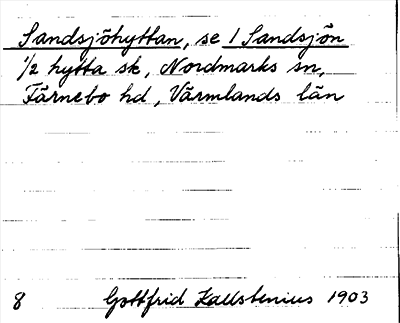 Sandsjöhyttan, se 1 Sandsjön
1/2 hytta sk, Nordmarks sn,
Färnebo hd, Värmlands län
8 Gottfrid Kallstenius 1903